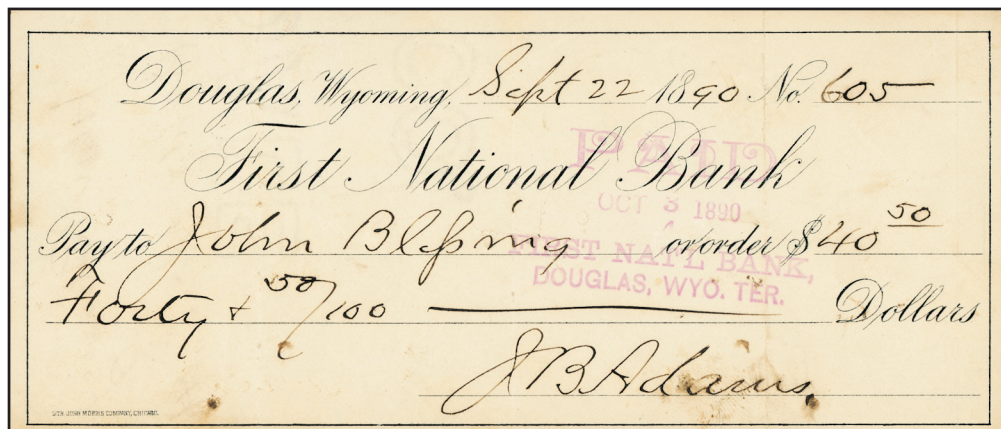 Douglas, Wyoming, Sept 22 1890 No. 605
First National Bank
PAID
OCT 3 1890
FIRST NAT'L BANK,
DOUGLAS, WYO. TER.
Pay to John Blessing or order $40 50
Forty + 50/100 Dollars
J B Adams.
LITH. JOHN MORRIS COMPANY, CHICAGO.